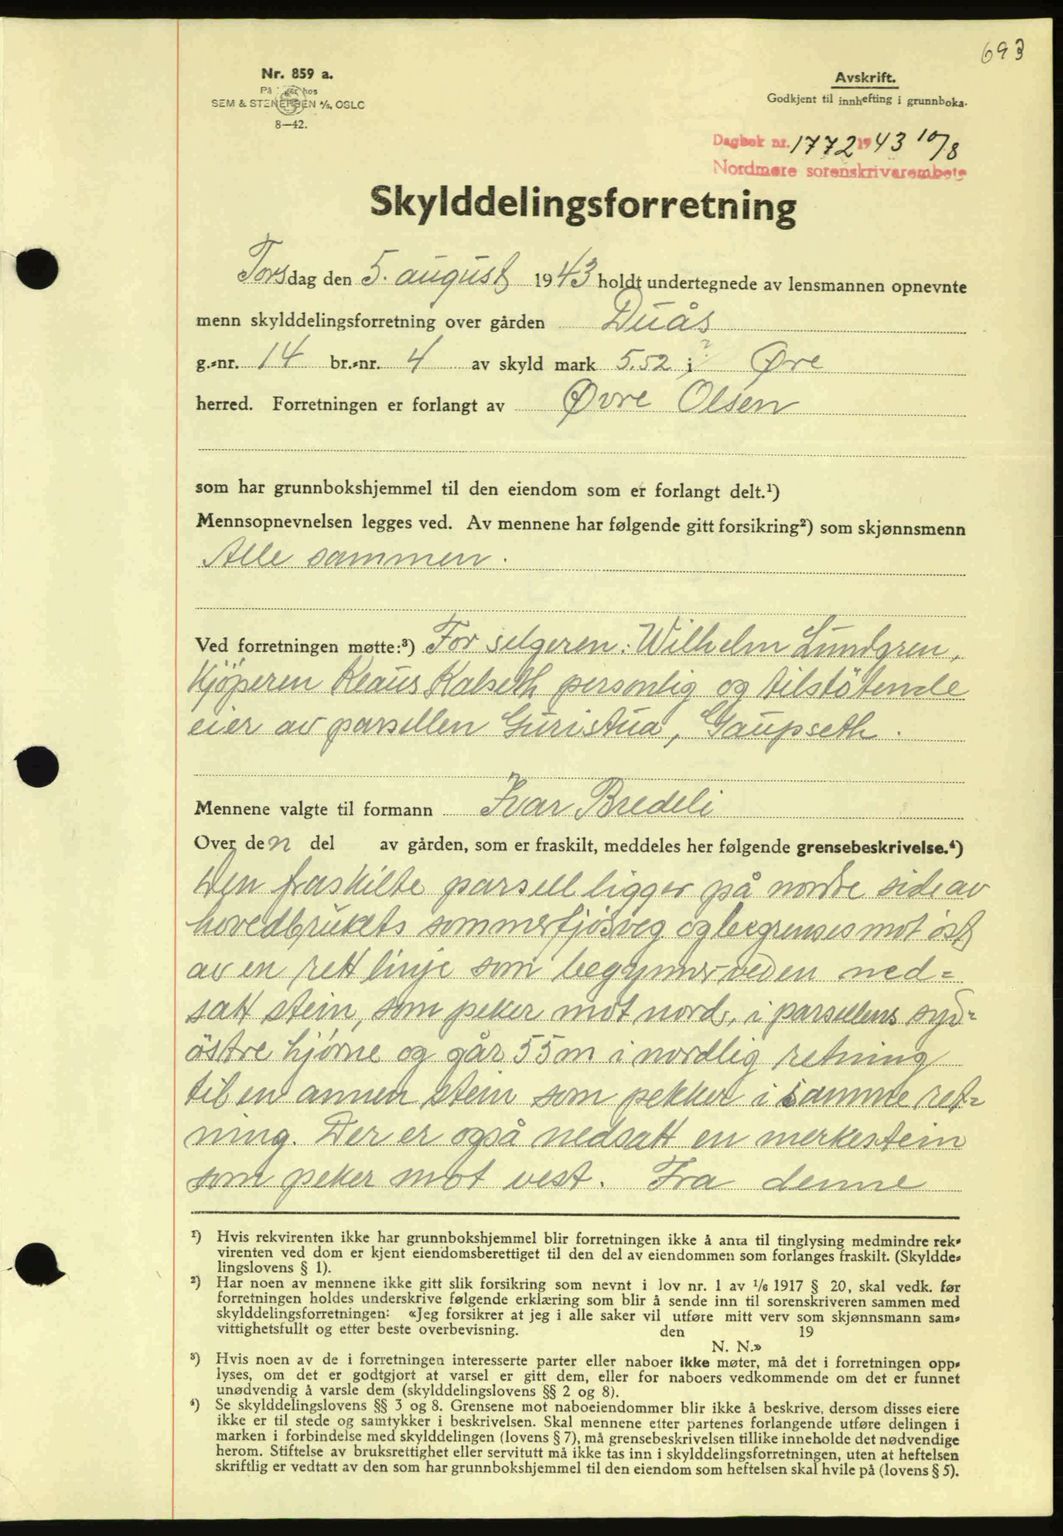 693
Nr. 859 a.
På lager hos
SEM & STENERSEN A/S, OSLO
8—42.
Avskrift.
Godkjent til innhefting i grunnboka.
Dagbok nr. 1772 1943 10/8
Nordmøre sorenskriverembete
Skylddelingsforretning
Torsdag den 5. august 1943 holdt undertegnede av lensmannen opnevnte
menn skylddelingsforretning over gården Duås
g.-nr. 14 br.-nr. 4 av skyld mark 5.52 i Øre
herred. Forretningen er forlangt av Øvre Olsen
som har grunnbokshjemmel til den eiendom som er forlangt delt.¹)
Mennsopnevnelsen legges ved. Av mennene har følgende gitt forsikring²) som skjønnsmenn
Alle sammen.
Ved forretningen møtte:³) For selgeren: Wilhelm Lundgren,
Kjøperen Klaus Kalseth personlig og tilstøtende
eier av parsellen Guristua, Gaupseth.
Mennene valgte til formann Ivar Bredeli
Over den del av gården, som er fraskilt, meddeles her følgende grensebeskrivelse.⁴)
Den fraskilte parsell ligger på nordre side av
hovedbrukets sommerfjøsveg og begrenses mot øst
av en rett linje som begynner ved en ned-
satt stein, som peker mot nord, i parsellens syd-
østre hjørne og går 55 m i nordlig retning
til en annen stein som pekker i samme ret-
ning. Der er også nedsatt en merkestein
som peker mot vest. Fra denne
¹) Hvis rekvirenten ikke har grunnbokshjemmel blir forretningen ikke å anta til tinglysing medmindre rek-
virenten ved dom er kjent eiendomsberettiget til den del av eiendommen som forlanges fraskilt. (Skyldde-
lingslovens § 1).
²) Har noen av mennene ikke gitt slik forsikring som nevnt i lov nr. 1 av 1/6 1917 § 20, skal vedk. før
forretningen holdes underskrive følgende erklæring som blir å sende inn til sorenskriveren sammen med
skylddelingsforretningen: «Jeg forsikrer at jeg i alle saker vil utføre mitt verv som skjønnsmann sam-
vittighetsfullt og etter beste overbevisning. den 19
N. N.»
³) Hvis noen av de i forretningen interesserte parter eller naboer ikke møter, må det i forretningen opp-
lyses, om det er godtgjort at varsel er gitt dem, eller for naboers vedkommende om det er funnet
unødvendig å varsle dem (skylddelingslovens §§ 2 og 8).
⁴) Se skylddelingslovens §§ 3 og 8. Grensene mot naboeiendommer blir ikke å beskrive, dersom disses eiere
ikke er til stede og samtykker i beskrivelsen. Skal mennene etter partenes forlangende utføre delingen i
marken i forbindelse med skylddelingen (lovens § 7), må grensebeskrivelsen tillike inneholde det nødvendige
herom. Stiftelse av bruksrettighet eller servitutt må ikke tas inn i skylddelingsforretningen, uten at heftelsen
skriftlig er vedtatt av den som har grunnbokshjemmel til den eiendom som heftelsen skal hvile på (lovens § 5).